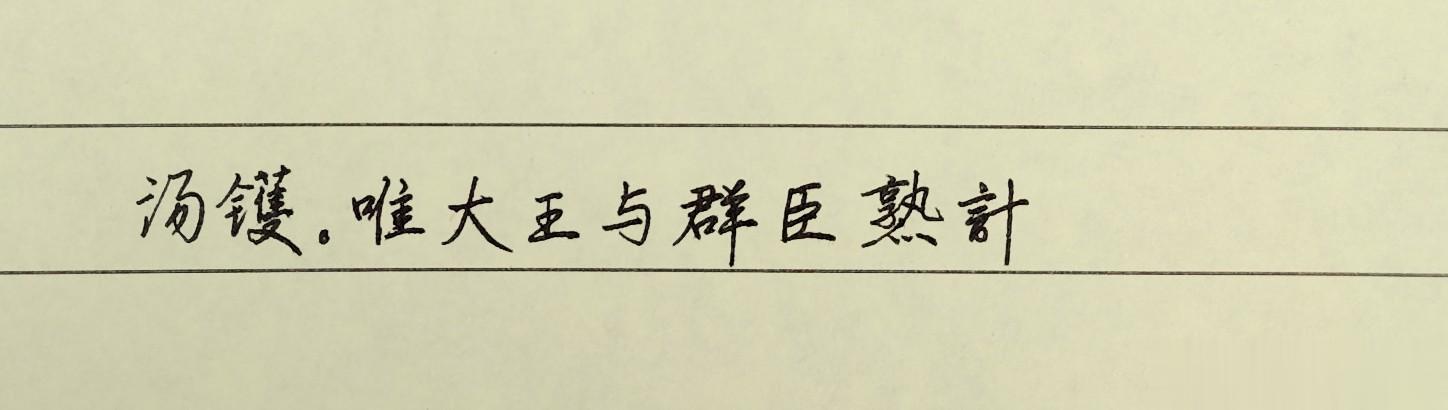 汤镬。唯大王与群臣熟計